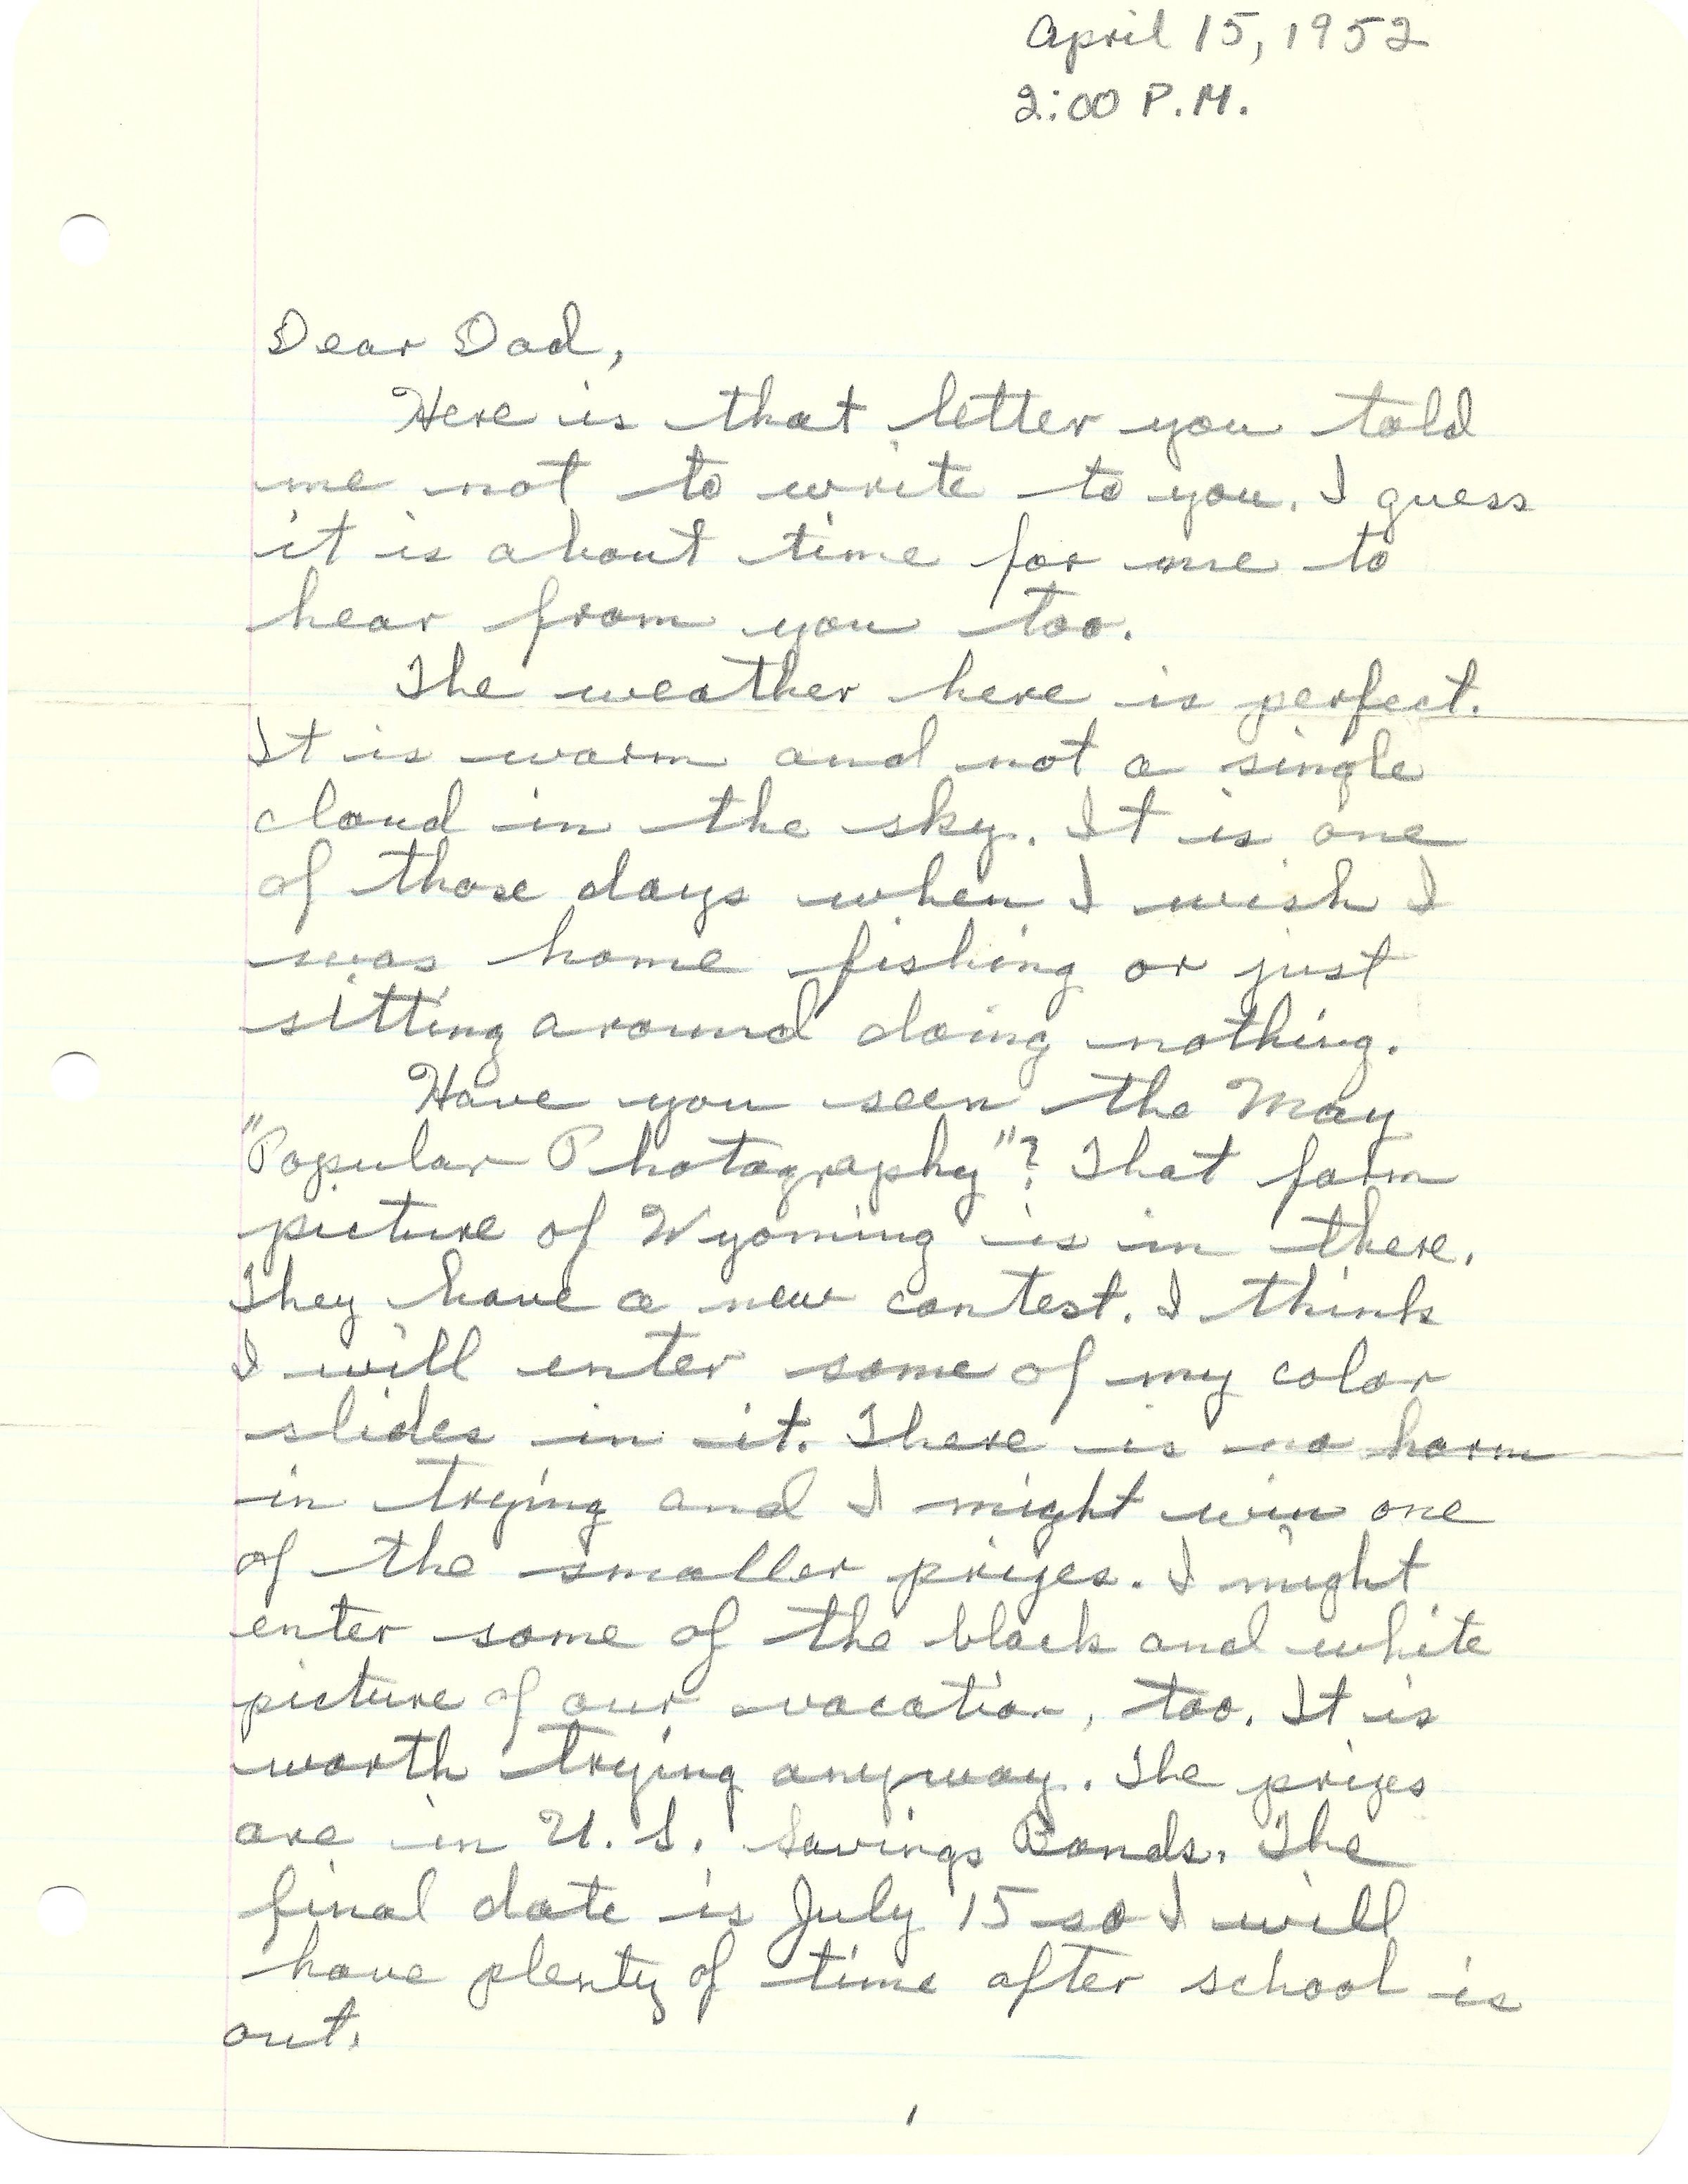 April 15, 1952
2:00 P.M.
Dear Dad,
Here is that letter you told
me not to write to you. I guess
it is about time for me to
hear from you too.
The weather here is perfect.
It is warm and not a single
cloud in the sky. It is one
of those days when I wish I
was home fishing or just
sitting around doing nothing.
Have you seen the May
"Popular Photography"? That farm
picture of Wyoming is in there.
They have a new contest. I think
I will enter some of my color
slides in it. There is no harm
in trying and I might win one
of the smaller prizes. I might
enter some of the black and white
picture of our vacation, too. It is
worth trying anyway. The prizes
are in U.S. Savings Bonds. The
final date is July 15 so I will
have plenty of time after school is
out.
1